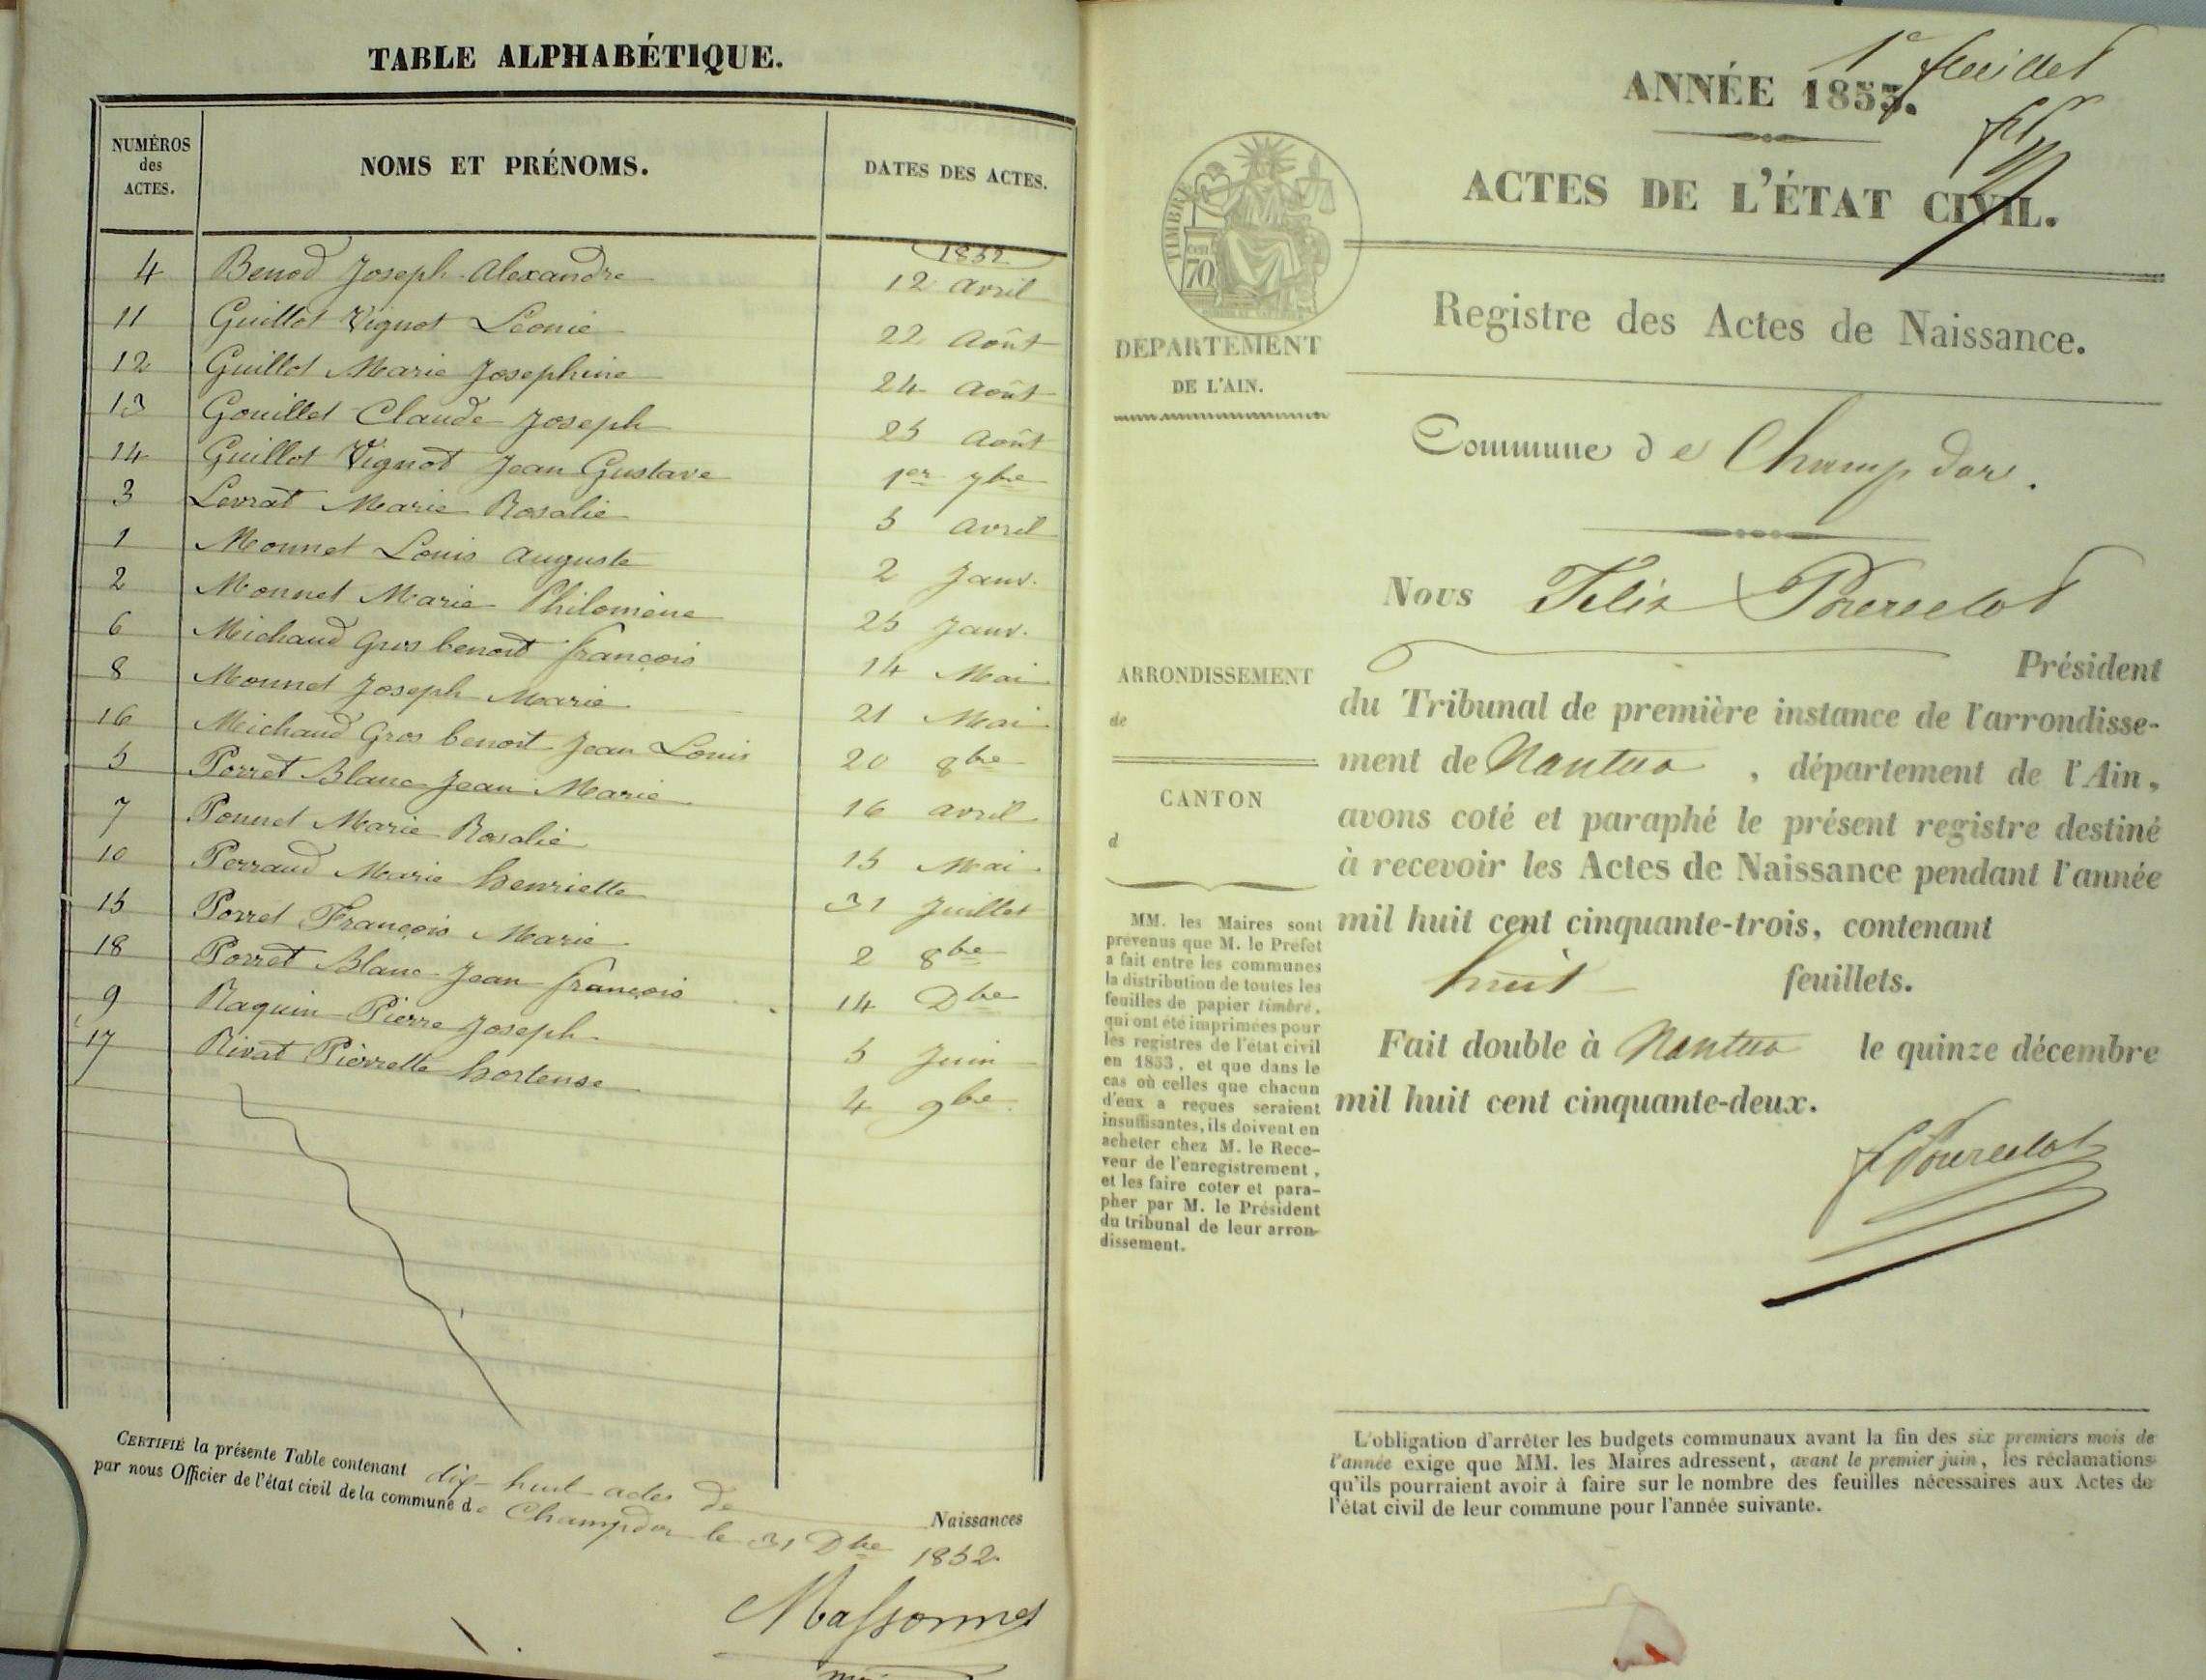 TABLE ALPHABÉTIQUE.
NUMÉROS des ACTES.
NOMS ET PRÉNOMS.
DATES DES ACTES.
1852
4 Benod Joseph Alexandre 12 avril
11 Guillot Vignot Léonie 22 Août
12 Guillot Marie Josephine 24 Août
13 Gouillet Claude Joseph 25 Août
14 Guillot Vignot Jean Gustave 1er 7bre
3 Levrat Marie Rosalie 5 avril
1 Monnet Louis auguste 2 Janv.
2 Monnet Marie Philomène 25 Janv.
6 Michaud Gros benoit françois 14 Mai
8 Monnet Joseph Marie 21 Mai
16 Michaud Gros benoit Jean Louis 20 8bre
5 Porret Blanc Jean Marie 16 avril
7 Ponnet Marie Rosalie 15 Mai
10 Perraud Marie henriette 31 Juillet
15 Porret François Marie 2 8bre
18 Porret Blanc Jean françois 14 Dbre
9 Raquin Pierre Joseph 5 Juin
17 Rivat Pièrrette hortense 4 9bre
CERTIFIÉ la présente Table contenant dix-huit actes de Naissances
par nous Officier de l'état civil de la commune de Champdor le 31 Dbre 1852
Massonnet
1e feuillet
ANNÉE 1853.
ACTES DE L'ÉTAT CIVIL.
TIMBRE
70
Registre des Actes de Naissance.
DEPARTEMENT
DE L'AIN.
Commune de Champdor.
Nous Felix Pourcelot
Président
du Tribunal de première instance de l'arrondisse-
ment de Nantua, département de l'Ain,
avons coté et paraphé le présent registre destiné
à recevoir les Actes de Naissance pendant l'année
mil huit cent cinquante-trois, contenant
huit feuillets.
Fait double à Nantua le quinze décembre
mil huit cent cinquante-deux.
F Pourcelot
ARRONDISSEMENT
de
CANTON
d
MM. les Maires sont
prévenus que M. le Préfet
a fait entre les communes
la distribution de toutes les
feuilles de papier timbré,
qui ont été imprimées pour
les registres de l'état civil
en 1853, et que dans le
cas où celles que chacun
d'eux a reçues seraient
insuffisantes, ils doivent en
acheter chez M. le Rece-
veur de l'enregistrement,
et les faire coter et para-
pher par M. le Président
du tribunal de leur arron-
dissement.
L'obligation d'arrêter les budgets communaux avant la fin des six premiers mois de
l'année exige que MM. les Maires adressent, avant le premier juin, les réclamations
qu'ils pourraient avoir à faire sur le nombre des feuilles nécessaires aux Actes de
l'état civil de leur commune pour l'année suivante.